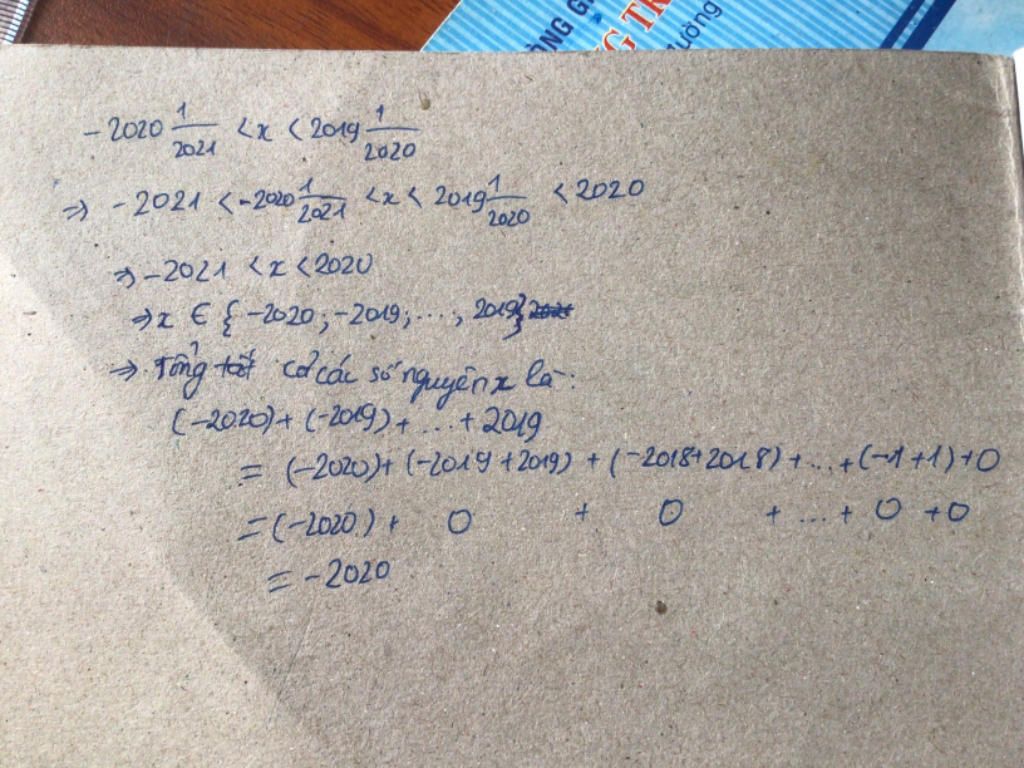 ÒNG GI
NG TR
ường
-2020 1/2021 < x < 2019 1/2020
=> -2021 < -2020 1/2021 < x < 2019 1/2020 < 2020
=> -2021 < x < 2020
=> x ∈ { -2020; -2019; ..., 2019}
=> Tổng tất cả các số nguyên x là:
(-2020) + (-2019) + ... + 2019
= (-2020) + (-2019 + 2019) + (-2018 + 2018) + ... + (-1 + 1) + 0
= (-2020) + 0 + 0 + ... + 0 + 0
= -2020